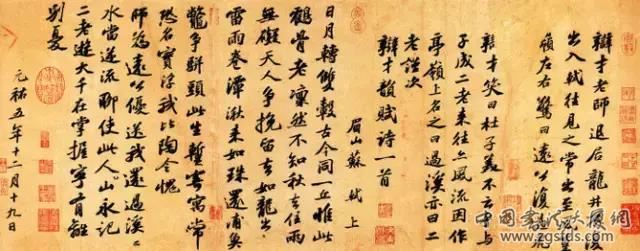 辯才老師退居龍井
出入軾往見之常出至
嶺左右驚曰遠公復
辯才笑曰杜子美不云乎
子成二老來往亦風流因作
亭嶺上名之曰過溪亦曰二
老謹次
辯才韻賦詩一首
眉山蘇軾上
日月轉雙轂古今同一丘惟此
鶴骨老凜然不知秋去住兩
無礙天人爭挽留去如龍出
雷雨卷潭湫來如珠還浦魚
鱉爭駢頭此生暫寄寓常
恐名實浮我比陶令愧
師為遠公優送我還過溪溪
水當逆流聊使此山人永記
二老遊大千在掌握寧有離
別憂
元祐五年十二月十九日
www.zgsfds.com